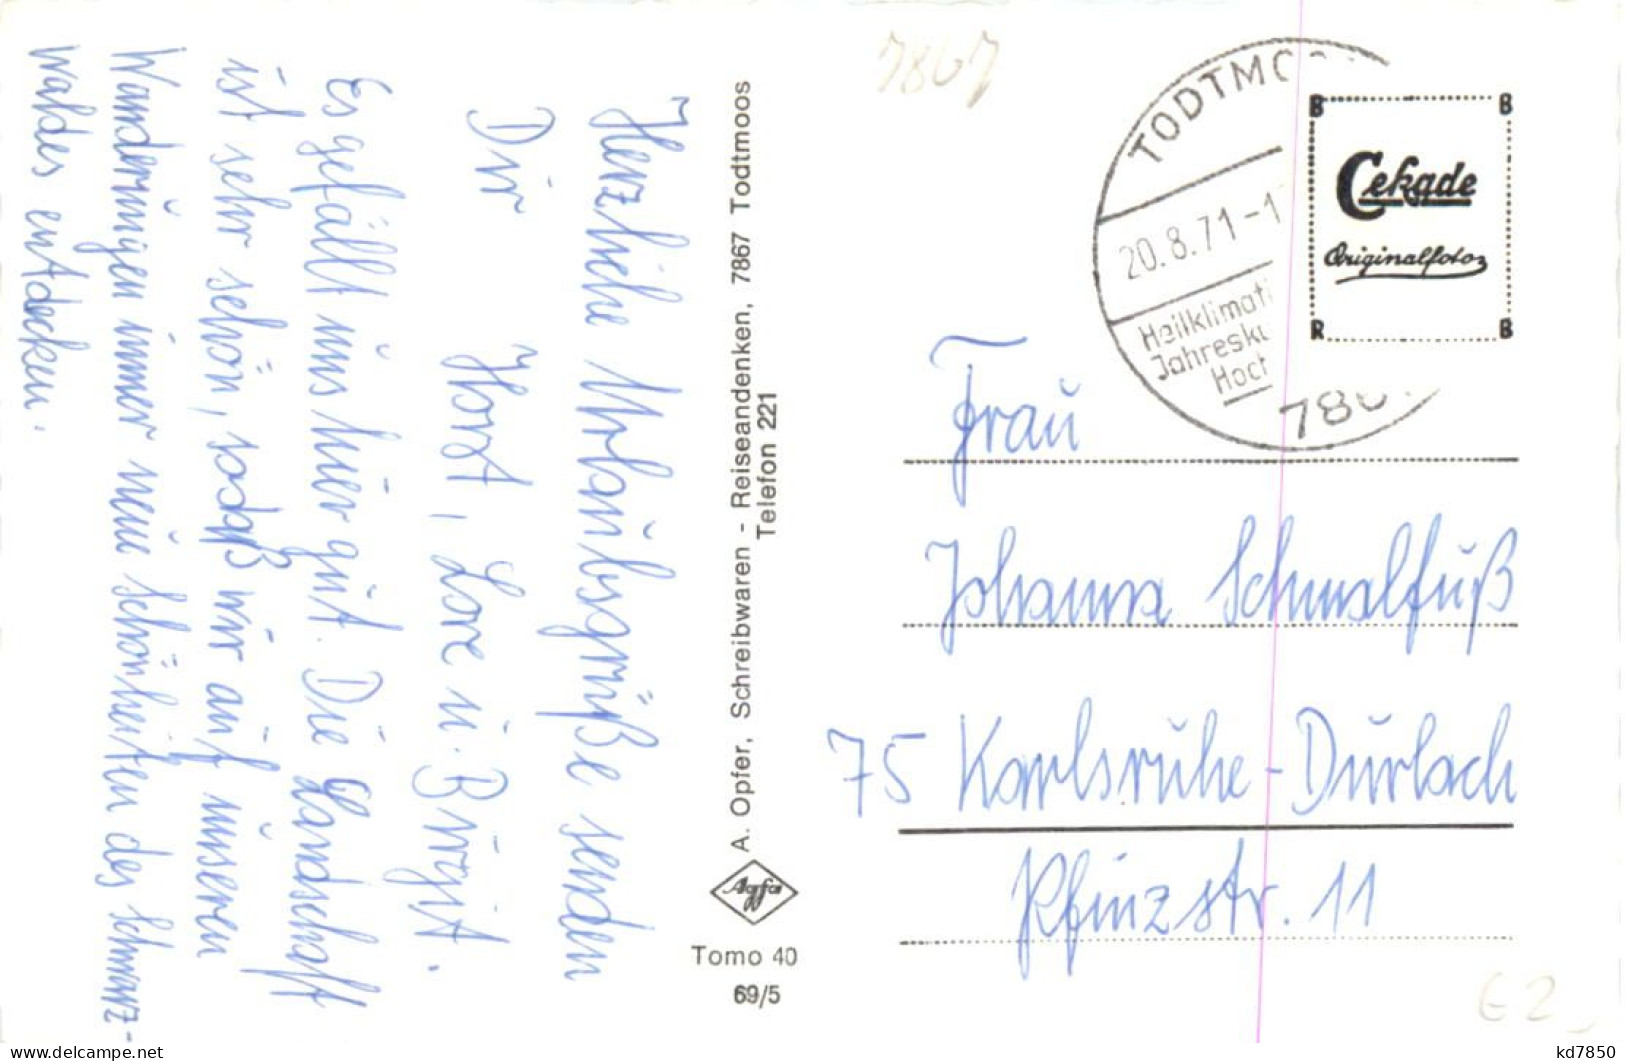 Herzliche Urlaubsgrüße senden
Dir Horst, Lore u. Birgit.
Es gefällt uns hier gut. Die Landschaft
ist sehr schön, sodaß wir auf unseren
Wanderungen immer neue Schönheiten des Schwarz-
waldes entdecken.
A. Opfer, Schreibwaren - Reiseandenken, 7867 Todtmoos
Telefon 221
Agfa
Tomo 40
69/5
7867
TODTMO
20.8.71-1
Heilklimati
Jahresku
Hoch
786
B B
Cekade
Originalfoto
R B
Frau
Johanna Schmalfuß
75 Karlsruhe-Durlach
Pfinzstr. 11
€ 2
kd7850